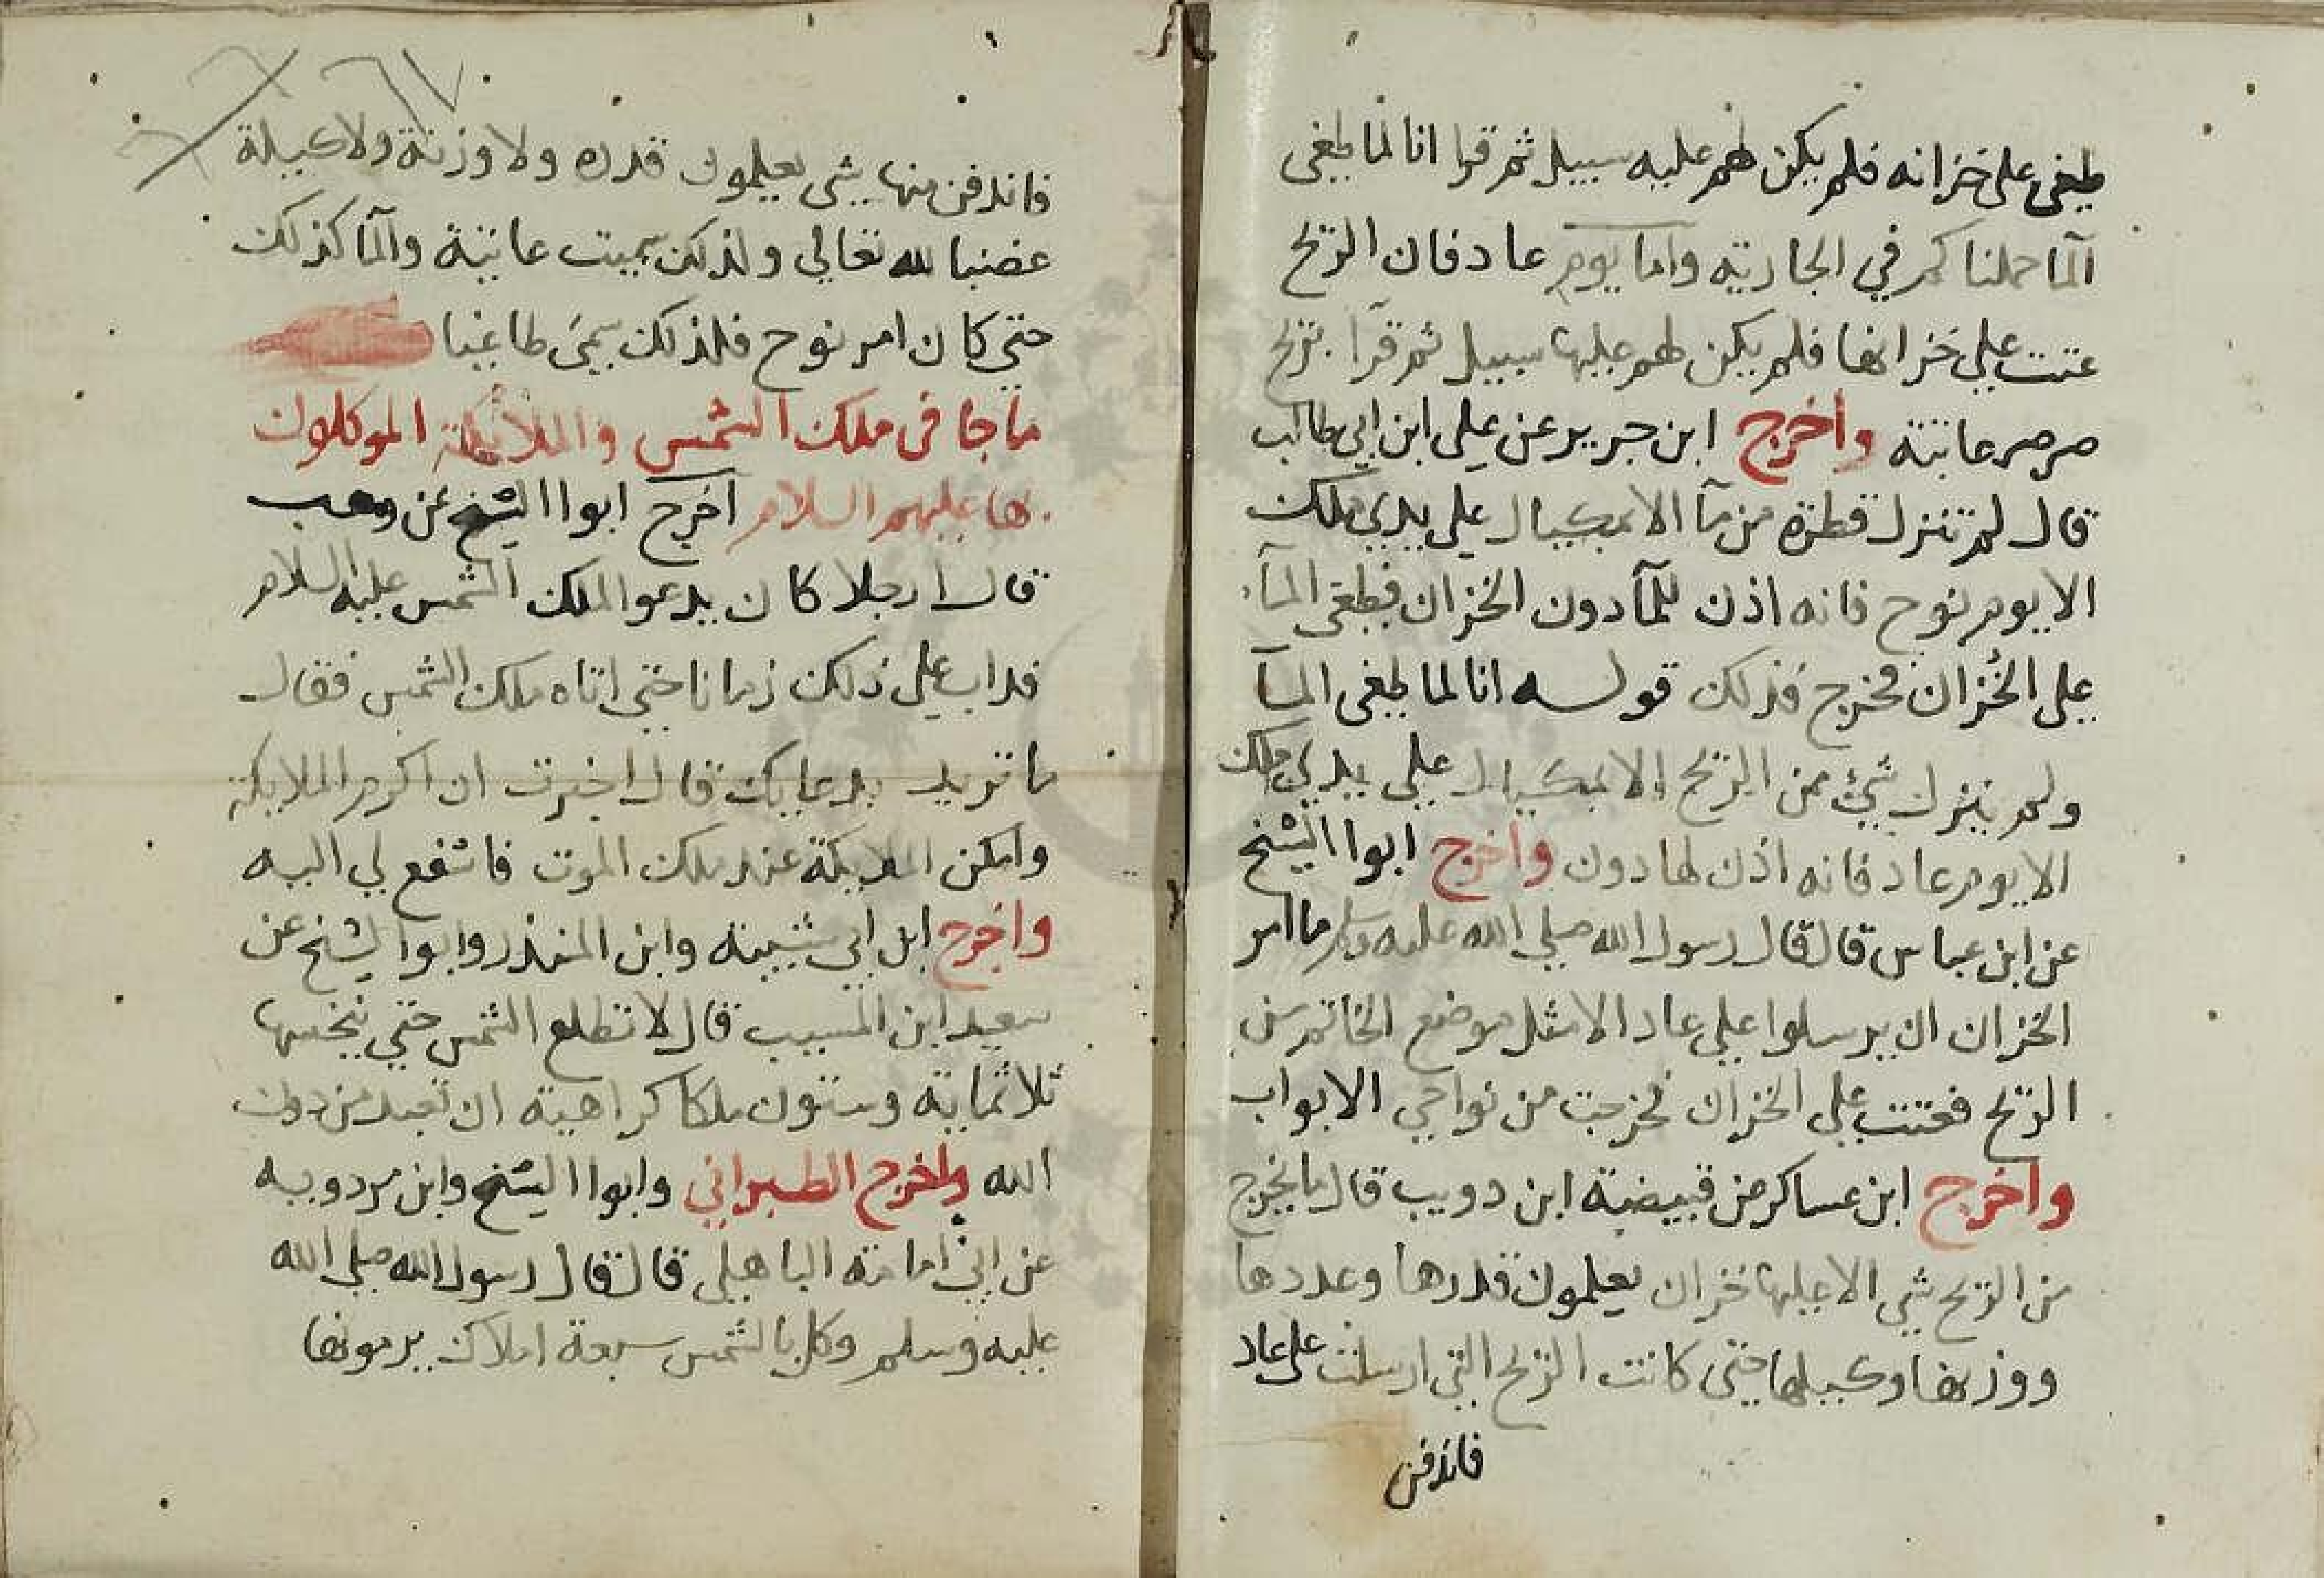 طغى على خزانه فلم يكن لهم عليه سبيل ثم قرا انا لما طغى
المآ حملناكم في الجارية واما يوم عاد فان الريح
عتت على خزانها فلم يكن لهم عليها سبيل ثم قرا بريح
صرصر عاتية واخرج ابن جرير عن على ابن ابي طالب
قال لم تنزل قطرة من مآ الا بمكيال على يدي ملك
الا يوم نوح فانه اذن للمآ دون الخزان فطغى المآ
على الخزان فخرج فذلك قوله انا لما طغى المآ
ولم ينزل شئ من الريح الا بمكيال على يدي ملك
الا يوم عاد فانه اذن لها دون واخرج ابوا الشيخ
عن ابن عباس قال قال رسول الله صلى الله عليه وسلم ما امر
الخزان ان يرسلوا على عاد الا مثل موضع الخاتم من
الريح فعتت على الخزان فخرجت من نواحي الابواب
واخرج ابن عساكر من قبيضة ابن دويب قال ما يخرج
من الريح شي الا عليها خزان يعلمون قدرها وعددها
ووزنها وكيلها حتى كانت الريح التي ارسلت على عاد
فاندفن
٦٧
فاندفن منها شي يعلمون قدره ولا وزنة ولا كيلة
غضبا لله تعالي ولذلك سميت عاتية والمآ كذلك
حتى كان امر نوح فلذلك سمي طاغيا
ما جا في ملك الشمس والملائكة الموكلون
بها عليهم السلام اخرج ابوا الشيخ عن وهب
قال ا رجلا كان يدعوا لملك الشمس عليه السلام
فداب على ذلك زمانا حتى اتاه ملك الشمس فقال
ما تريد بدعايك قال اخبرت ان اكرم الملايكة
وامكن الملايكة عند ملك الموت فاشفع لي اليه
واخرج ابن ابي شيبة وابن المنذر وابوا الشيخ عن
سعيد ابن المسيب قال لا تطلع الشمس حتى ينخسها
ثلاثماية وستون ملكا كراهية ان تعبد من دون
الله واخرج الطبراني وابوا الشيخ وابن مردويه
عن ابي امامة الباهلي قال قال رسول الله صلى الله
عليه وسلم وكل بالشمس سبعة املاك يرمونها